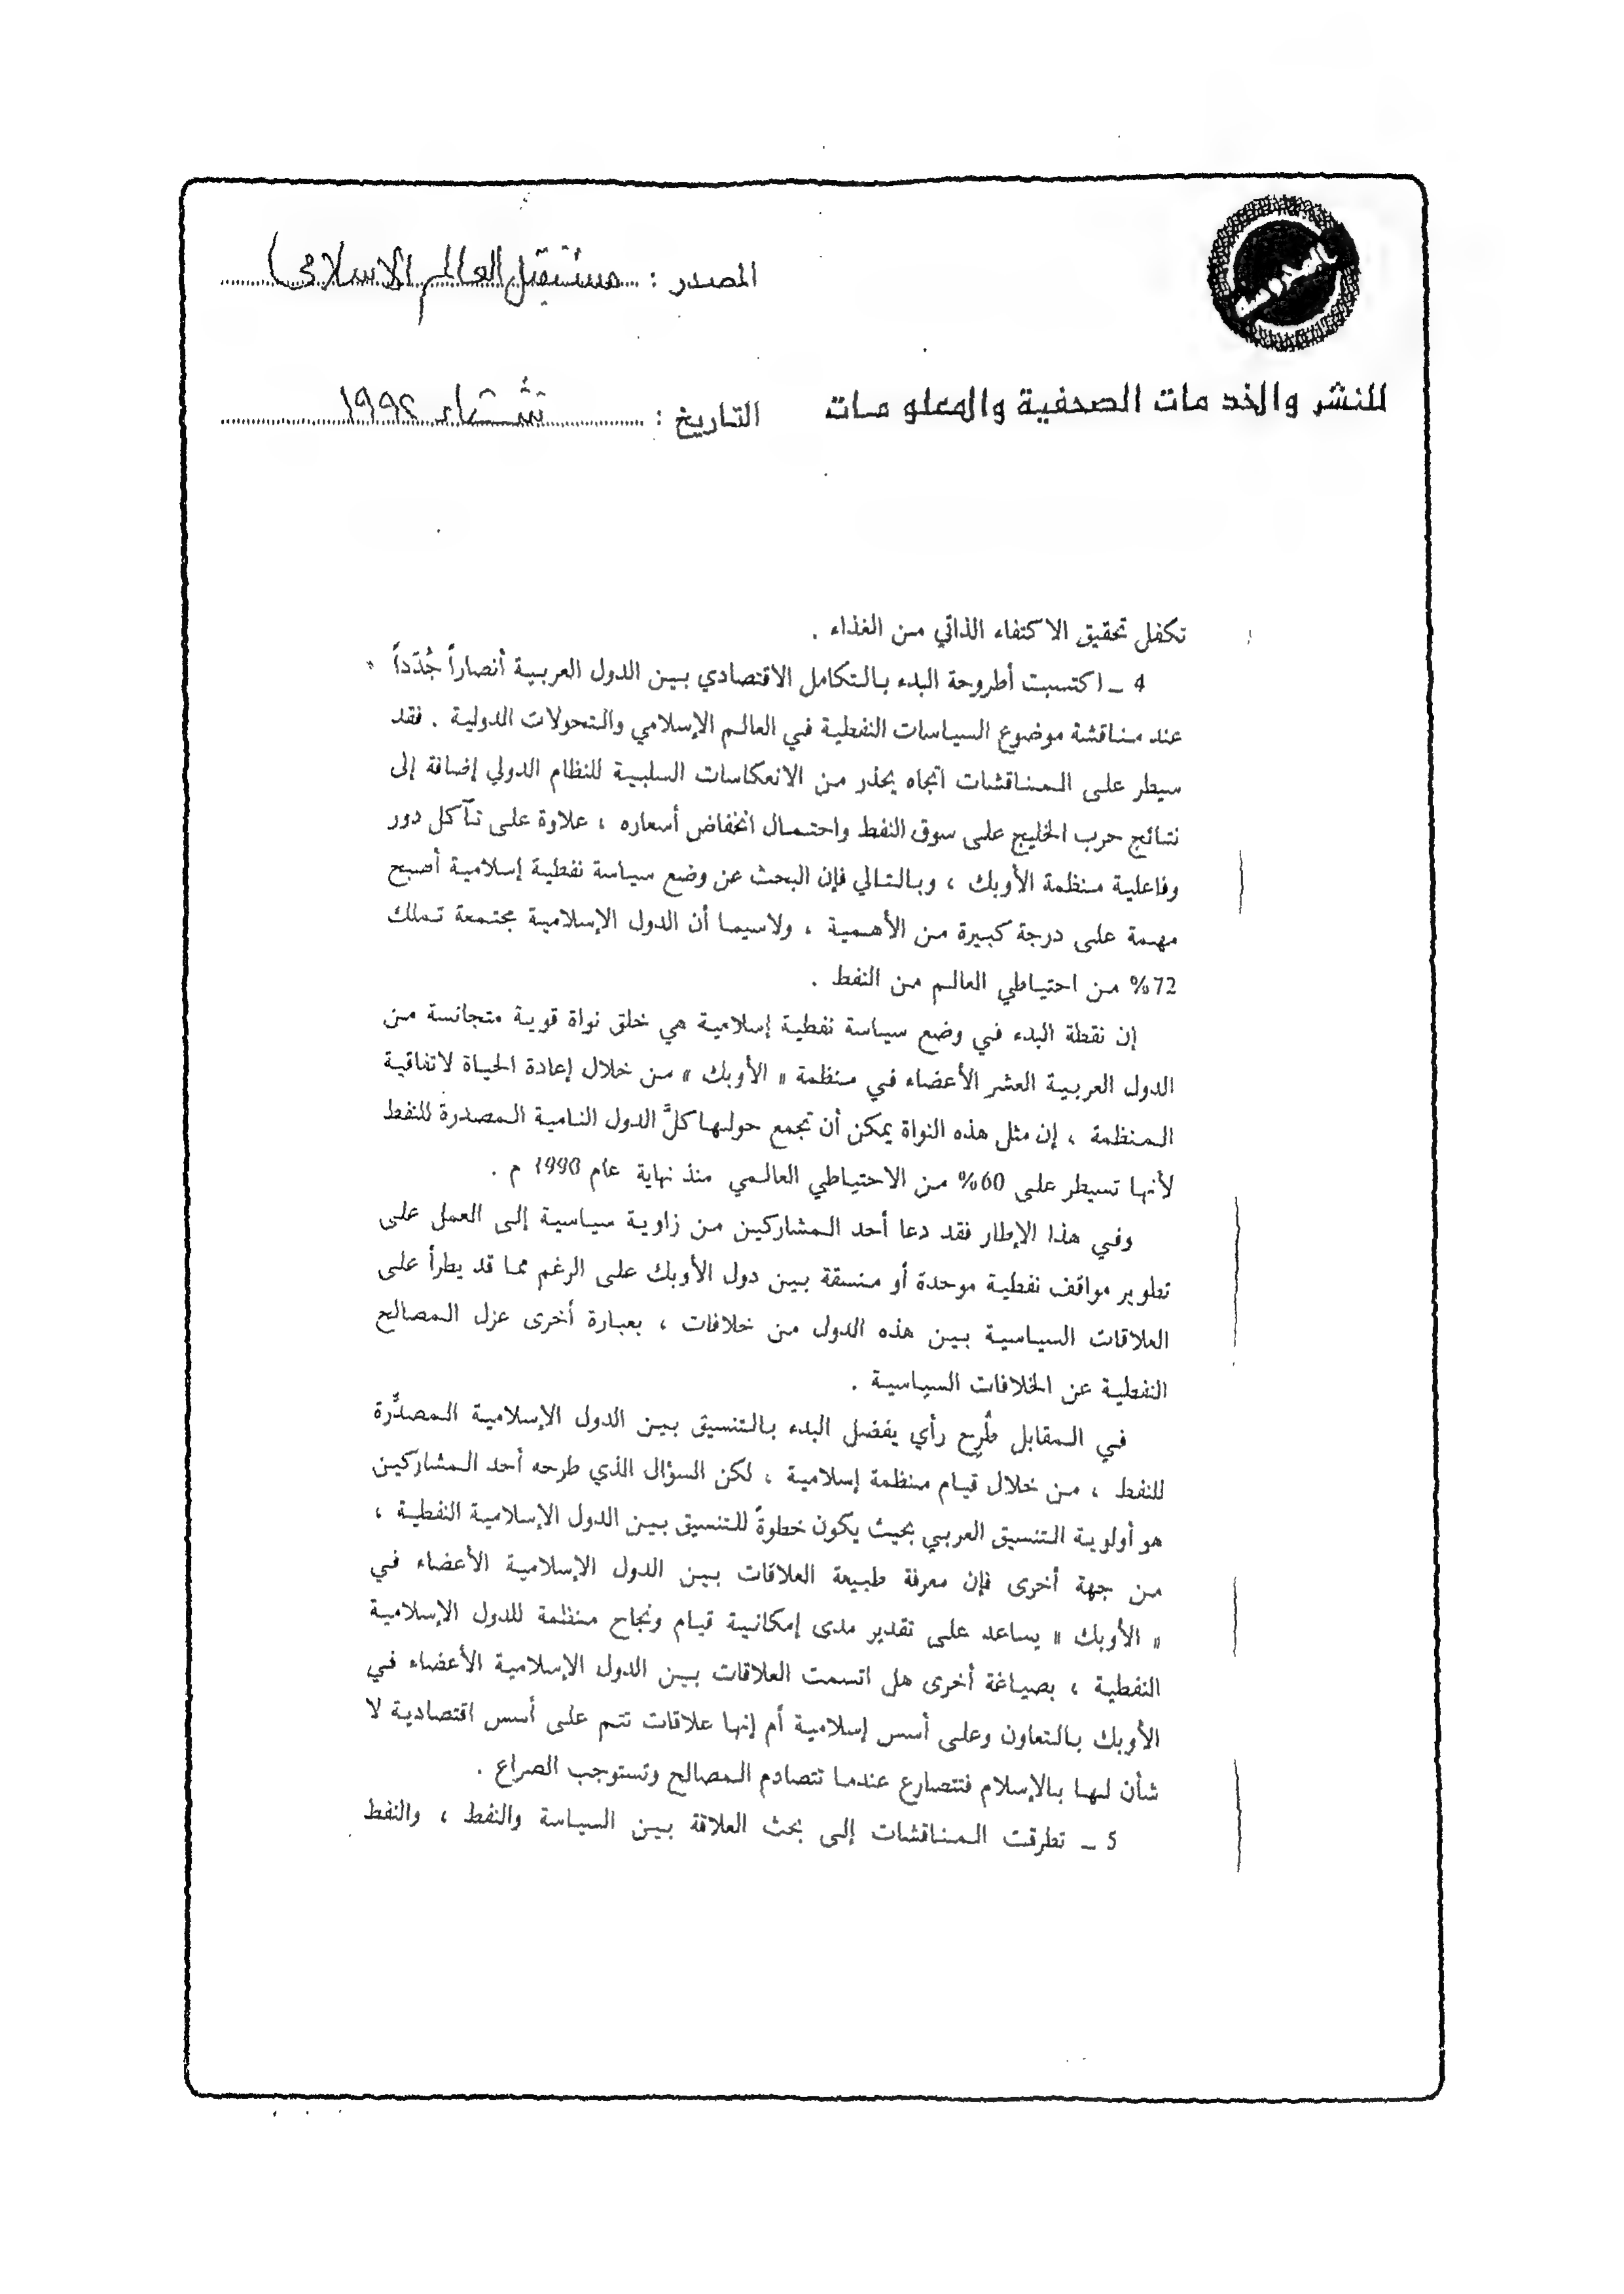 المصدر : مستقبل العالم الاسلامى
للنشر والخدمات الصحفية والمعلومات
التاريخ : شتاء ١٩٩٢
تكفل تحقيق الاكتفاء الذاتي من الغذاء .
4 ـ اكتسبت أطروحة البدء بالتكامل الاقتصادي بين الدول العربية أنصاراً جُدداً
عند مناقشة موضوع السياسات النفطية في العالم الإسلامي والتحولات الدولية . فقد
سيطر على المناقشات اتجاه يحذر من الانعكاسات السلبية للنظام الدولي إضافة إلى
نتائج حرب الخليج على سوق النفط واحتمال انخفاض أسعاره ، علاوة على تآكل دور
وفاعلية منظمة الأوبك ، وبالتالي فإن البحث عن وضع سياسة نفطية إسلامية أصبح
مهمة على درجة كبيرة من الأهمية ، ولاسيما أن الدول الإسلامية مجتمعة تملك
72% من احتياطي العالم من النفط .
إن نقطة البدء في وضع سياسة نفطية إسلامية هي خلق نواة قوية متجانسة من
الدول العربية العشر الأعضاء في منظمة « الأوبك » من خلال إعادة الحياة لاتفاقية
المنظمة ، إن مثل هذه النواة يمكن أن تجمع حولها كلَّ الدول النامية المصدرة للنفط
لأنها تسيطر على 60% من الاحتياطي العالمي منذ نهاية عام 1990 م .
وفي هذا الإطار فقد دعا أحد المشاركين من زاوية سياسية إلى العمل على
تطوير مواقف نفطية موحدة أو منسقة بين دول الأوبك على الرغم مما قد يطرأ على
العلاقات السياسية بين هذه الدول من خلافات ، بعبارة أخرى عزل المصالح
النفطية عن الخلافات السياسية .
في المقابل طُرِح رأي يفضل البدء بالتنسيق بين الدول الإسلامية المصدِّرة
للنفط ، من خلال قيام منظمة إسلامية ، لكن السؤال الذي طرحه أحد المشاركين
هو أولوية التنسيق العربي بحيث يكون خطوةً للتنسيق بين الدول الإسلامية النفطية ،
من جهة أخرى فإن معرفة طبيعة العلاقات بين الدول الإسلامية الأعضاء في
« الأوبك » يساعد على تقدير مدى إمكانية قيام ونجاح منظمة للدول الإسلامية
النفطية ، بصياغة أخرى هل اتسمت العلاقات بين الدول الإسلامية الأعضاء في
الأوبك بالتعاون وعلى أسس إسلامية أم إنها علاقات تتم على أسس اقتصادية لا
شأن لها بالإسلام فتتصارع عندما تتصادم المصالح وتستوجب الصراع .
5 ـ تطرقت المناقشات إلى بحث العلاقة بين السياسة والنفط ، والنفط